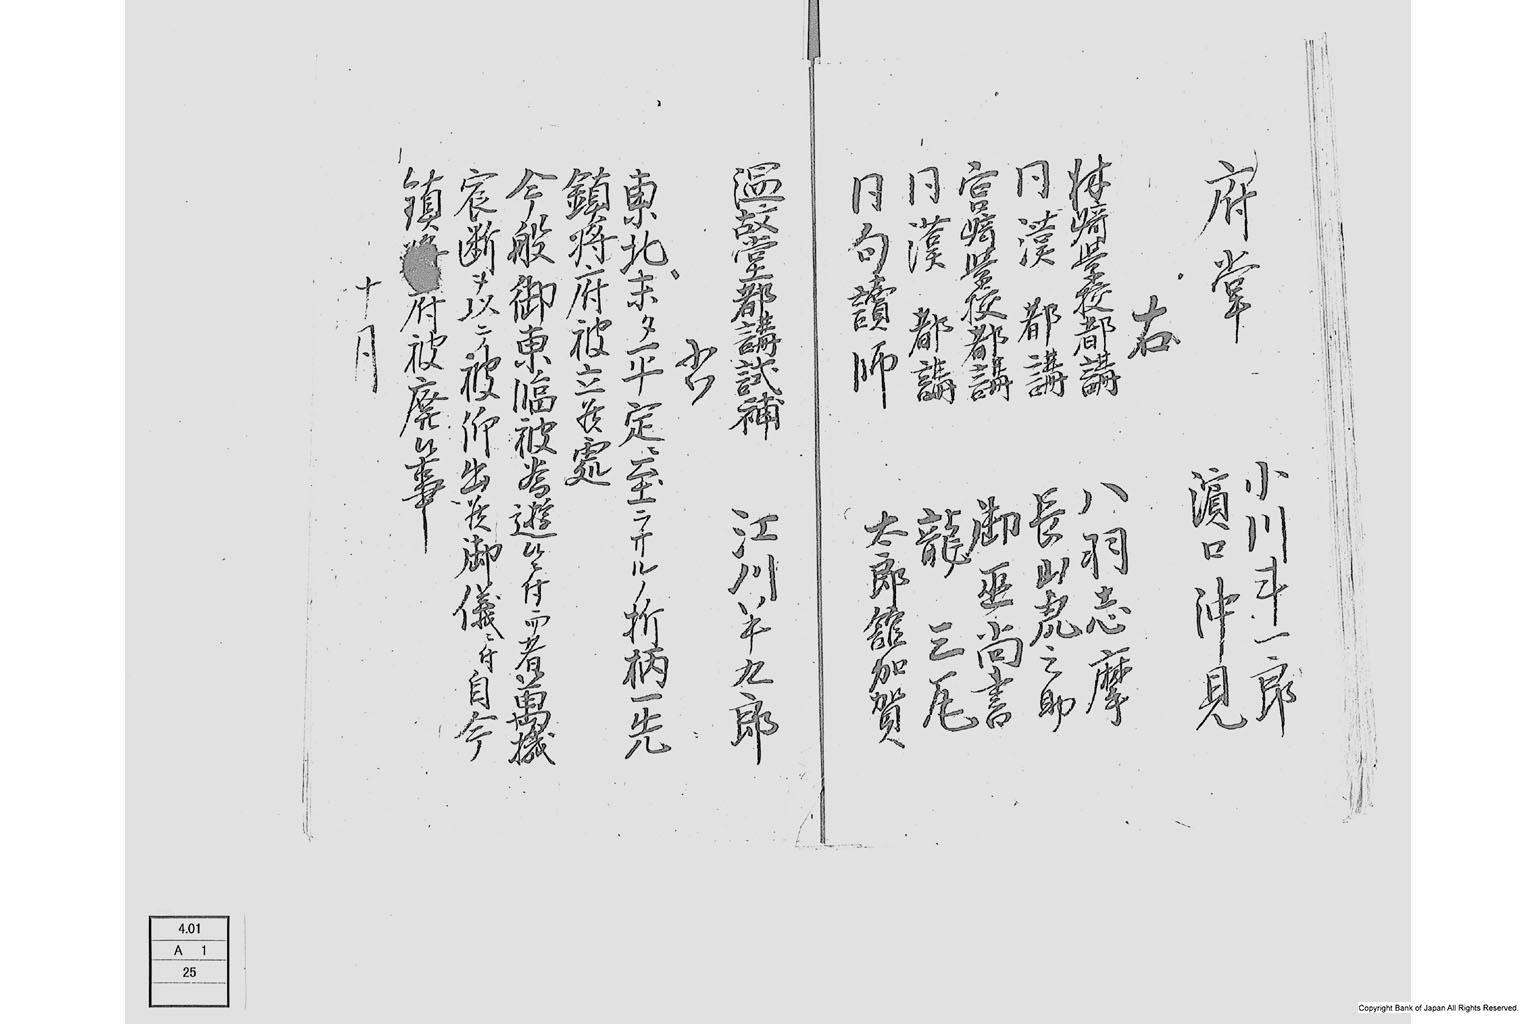 府掌
小川斗一郎
濱口沖見
右
林崎学校都講 八羽志摩
同漢 都講 長山虎之助
宮崎学校都講 御巫尚書
同漢 都講 龍 三瓦
同句讀師 太郎館加賀
温故堂都講試補 江川半九郎
右
東北未タ平定ニ至ラサルノ折柄一先
鎮将府被立候處
今般御東臨被為遊候ニ付而者萬機
宸断ヲ以テ被仰出候御儀ニ付自今
鎮将府被廃候事
十月
4.01
A 1
25
Copyright Bank of Japan All Rights Reserved.